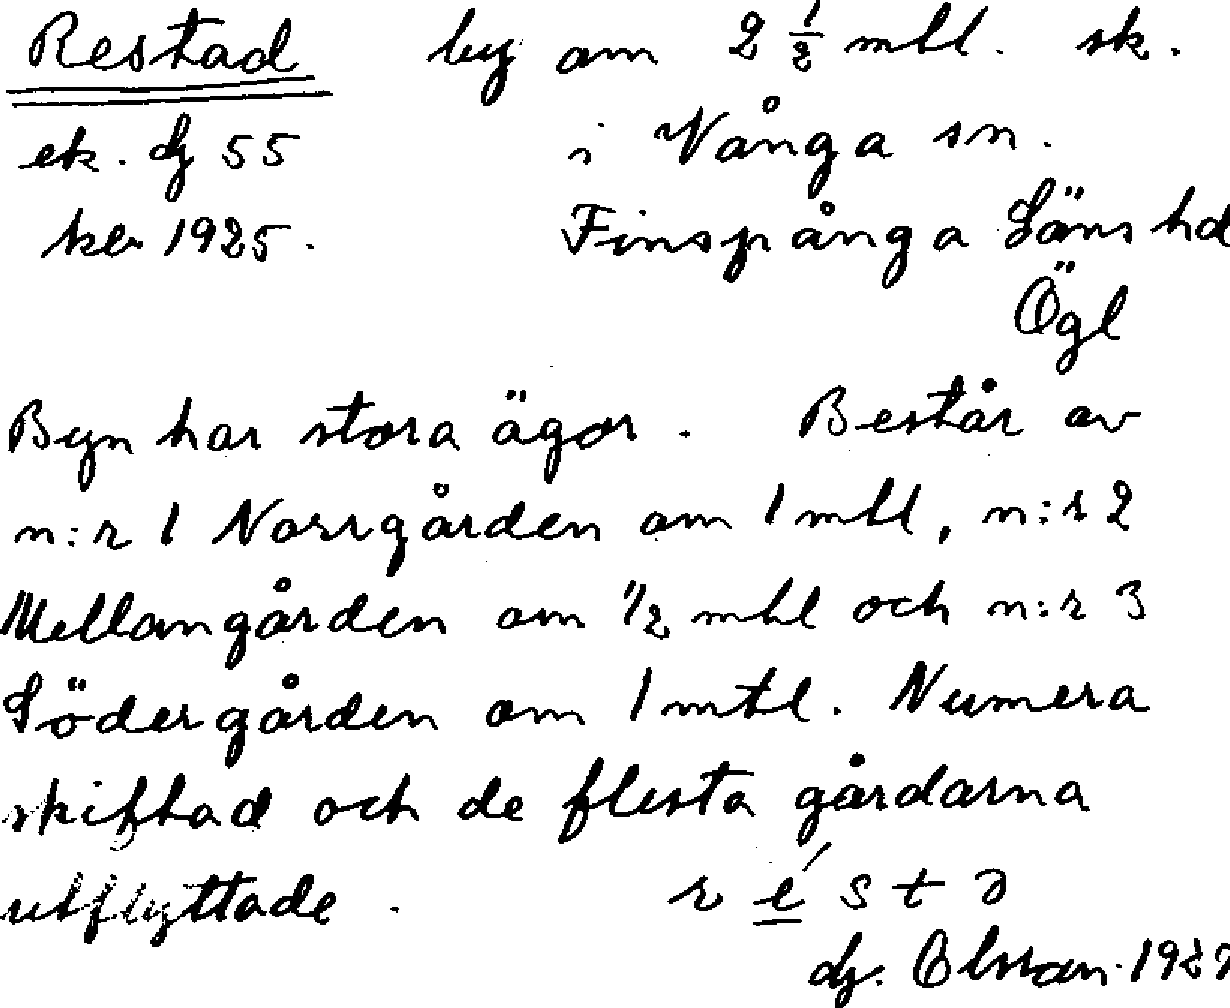 Restad by om 2 1/2 mtl. sk.
ek. dz 55 i Vånga sn.
1925. Finspånga Läns hd
Ögl
Byn har stora ägor. Består av
n:r 1 Norrgården om 1 mtl, n:r 2
Mellangården om 1/2 mtl och n:r 3
Södergården om 1 mtl. Numera
skiftad och de flesta gårdarna
utflyttade. r é s t ə
Olsson